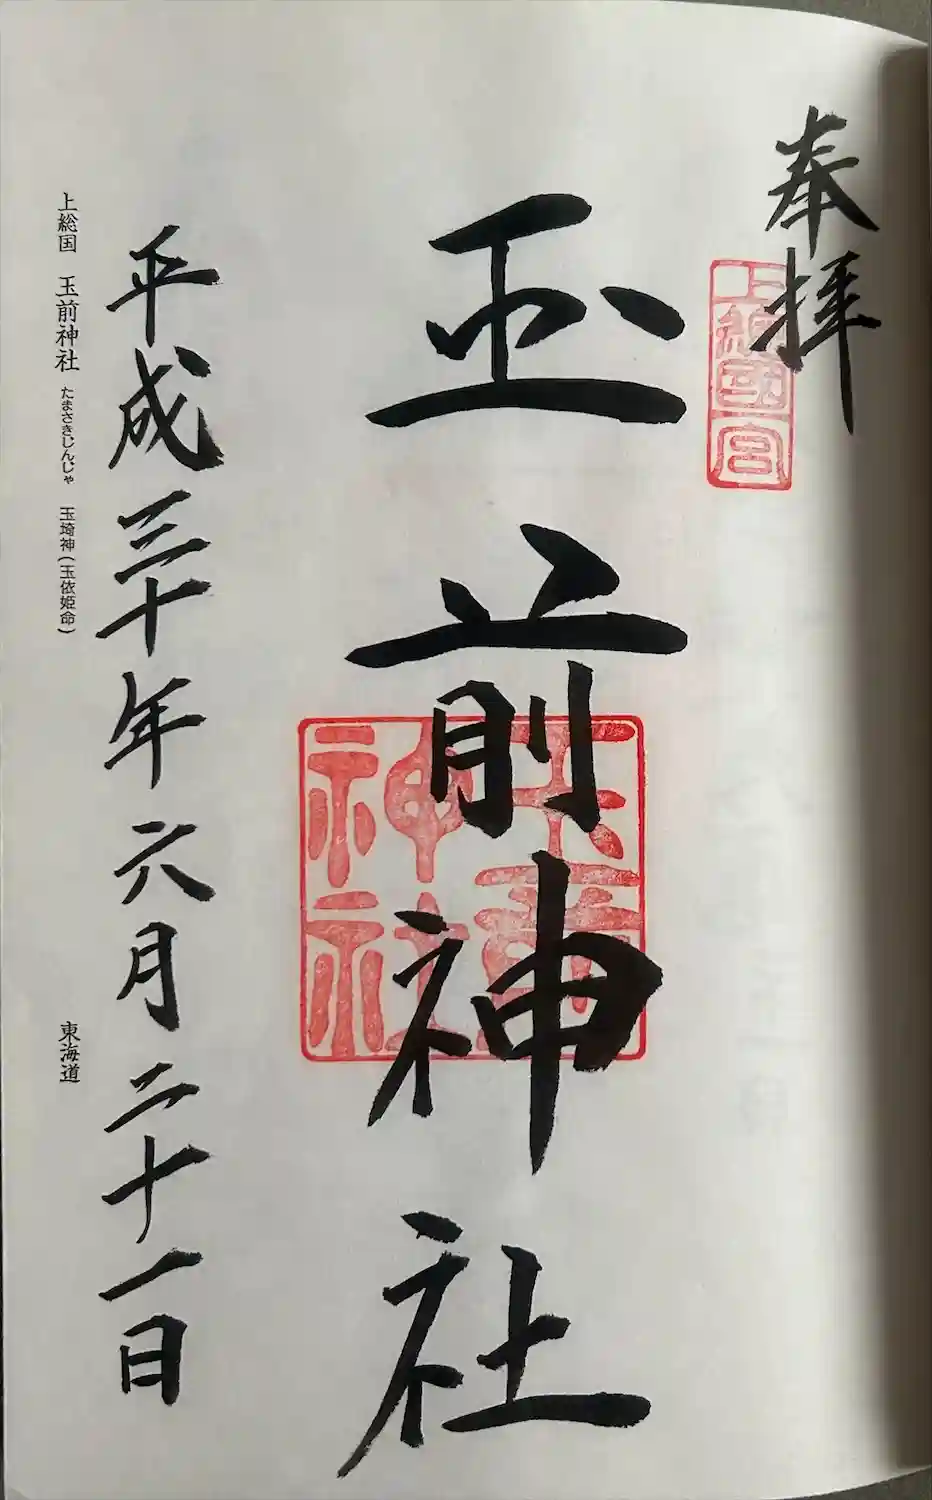 奉拝
上総國一宮
玉前神社
玉前神社
平成三十年六月二十一日
上総国 玉前神社 たまさきじんじゃ 玉埼神(玉依姫命) 東海道